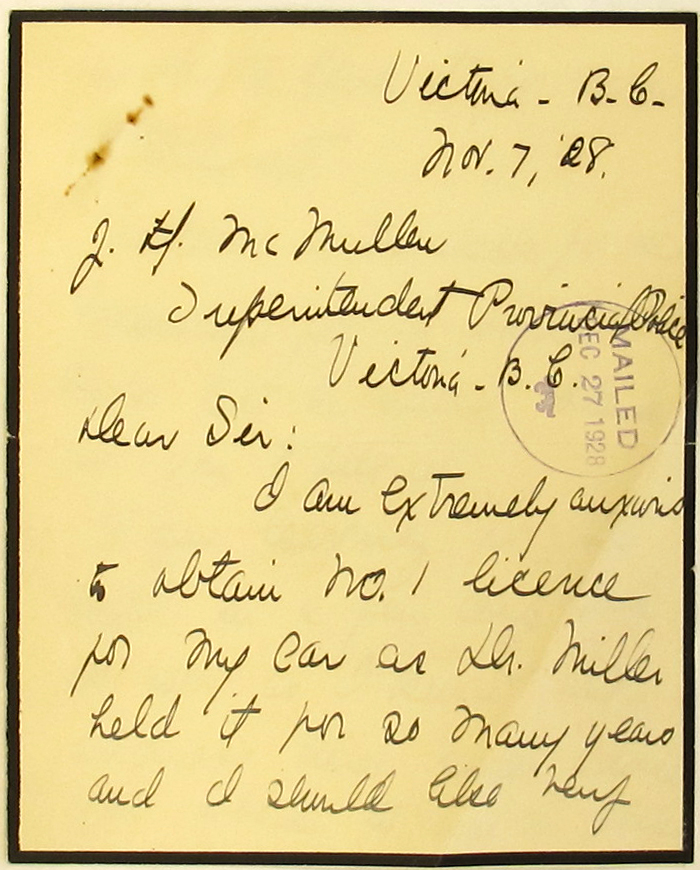 Victoria - B.C.
Nov. 7, '28.
J. H. McMullen
Superintendent Provincial Police
Victoria - B.C.
MAILED
DEC 27 1928
Dear Sir:
I am extremely anxious
to obtain No. 1 licence
for my car as Dr. Miller
held it for so many years
and I should like very